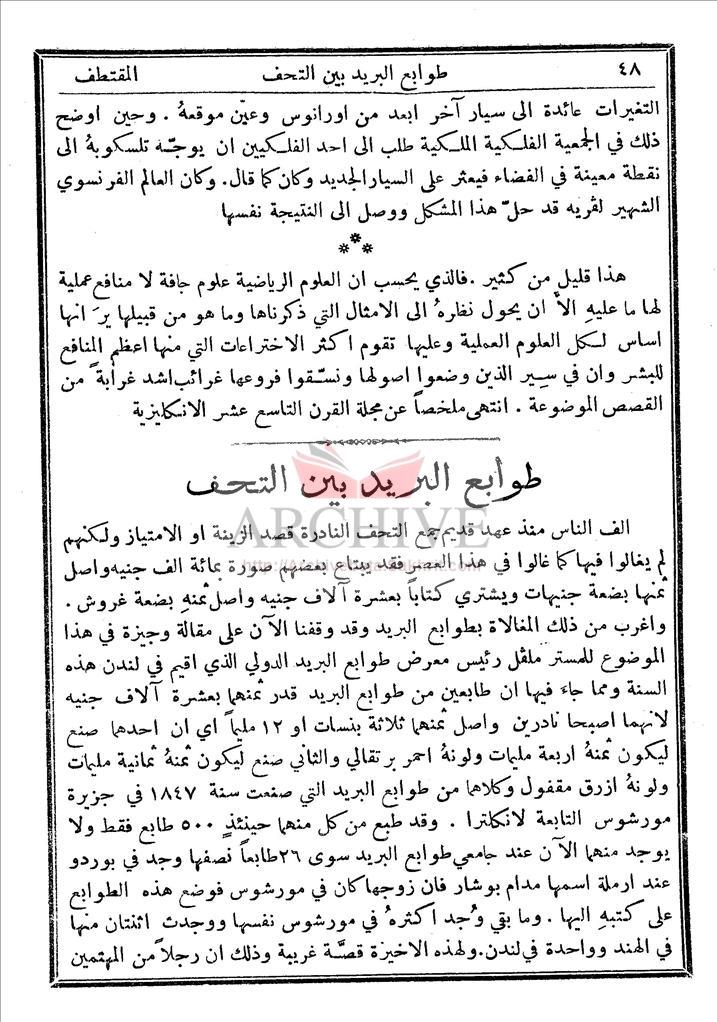 ٤٨ طوابع البريد بين التحف المقتطف
التغيرات عائدة الى سيار آخر ابعد من اورانوس وعيّن موقعهُ . وحين اوضح
ذلك في الجمعية الفلكية الملكية طلب الى احد الفلكيين ان يوجّه تلسكوبهُ الى
نقطة معينة في الفضاء فيعثر على السيار الجديد وكان كما قال . وكان العالم الفرنسوي
الشهير لڤريه قد حلّ هذا المشكل ووصل الى النتيجة نفسها
***
هذا قليل من كثير . فالذي يحسب ان العلوم الرياضية علوم جافة لا منافع عملية
لها ما عليهِ الاَّ ان يحول نظرهُ الى الامثال التي ذكرناها وما هو من قبيلها يرَ انها
اساس لكل العلوم العملية وعليها تقوم اكثر الاختراعات التي منها اعظم المنافع
للبشر وان في سِيَر الذين وضعوا اصولها ونسّقوا فروعها غرائب اشد غرابةً من
القصص الموضوعة . انتهى ملخصاً عن مجلة القرن التاسع عشر الانكليزية
طوابع البريد بين التحف
ARCHIVE
الف الناس منذ عهد قديم جمع التحف النادرة قصد الزينة او الامتياز ولكنهم
لم يغالوا فيها كما غالوا في هذا العصر فقد يبتاع بعضهم صورة بمائة الف جنيه واصل
ثمنها بضعة جنيهات ويشتري كتاباً بعشرة آلاف جنيه واصل ثمنهِ بضعة غروش .
واغرب من ذلك المغالاة بطوابع البريد وقد وقفنا الآن على مقالة وجيزة في هذا
الموضوع للمستر ملڤل رئيس معرض طوابع البريد الدولي الذي اقيم في لندن هذه
السنة ومما جاءَ فيها ان طابعين من طوابع البريد قدر ثمنهما بعشرة آلاف جنيه
لانهما اصبحا نادرين واصل ثمنهما ثلاثة بنسات او ١٢ مليماً اي ان احدهما صنع
ليكون ثمنهُ اربعة مليمات ولونهُ احمر برتقالي والثاني صنع ليكون ثمنهُ ثمانية مليمات
ولونهُ ازرق مقفول وكلاهما من طوابع البريد التي صنعت سنة ١٨٤٧ في جزيرة
مورشوس التابعة لانكلترا . وقد طبع من كل منهما حينئذٍ ٥٠٠ طابع فقط ولا
يوجد منهما الآن عند جامعي طوابع البريد سوى ٢٦ طابعاً نصفها وجد في بوردو
عند ارملة اسمها مدام بوشار فان زوجها كان في مورشوس فوضع هذه الطوابع
على كتبهِ اليها . وما بقي وُجد اكثرهُ في مورشوس نفسها ووجدت اثنتان منها
في الهند وواحدة في لندن . ولهذه الاخيرة قصَّة غريبة وذلك ان رجلاً من المهتمين